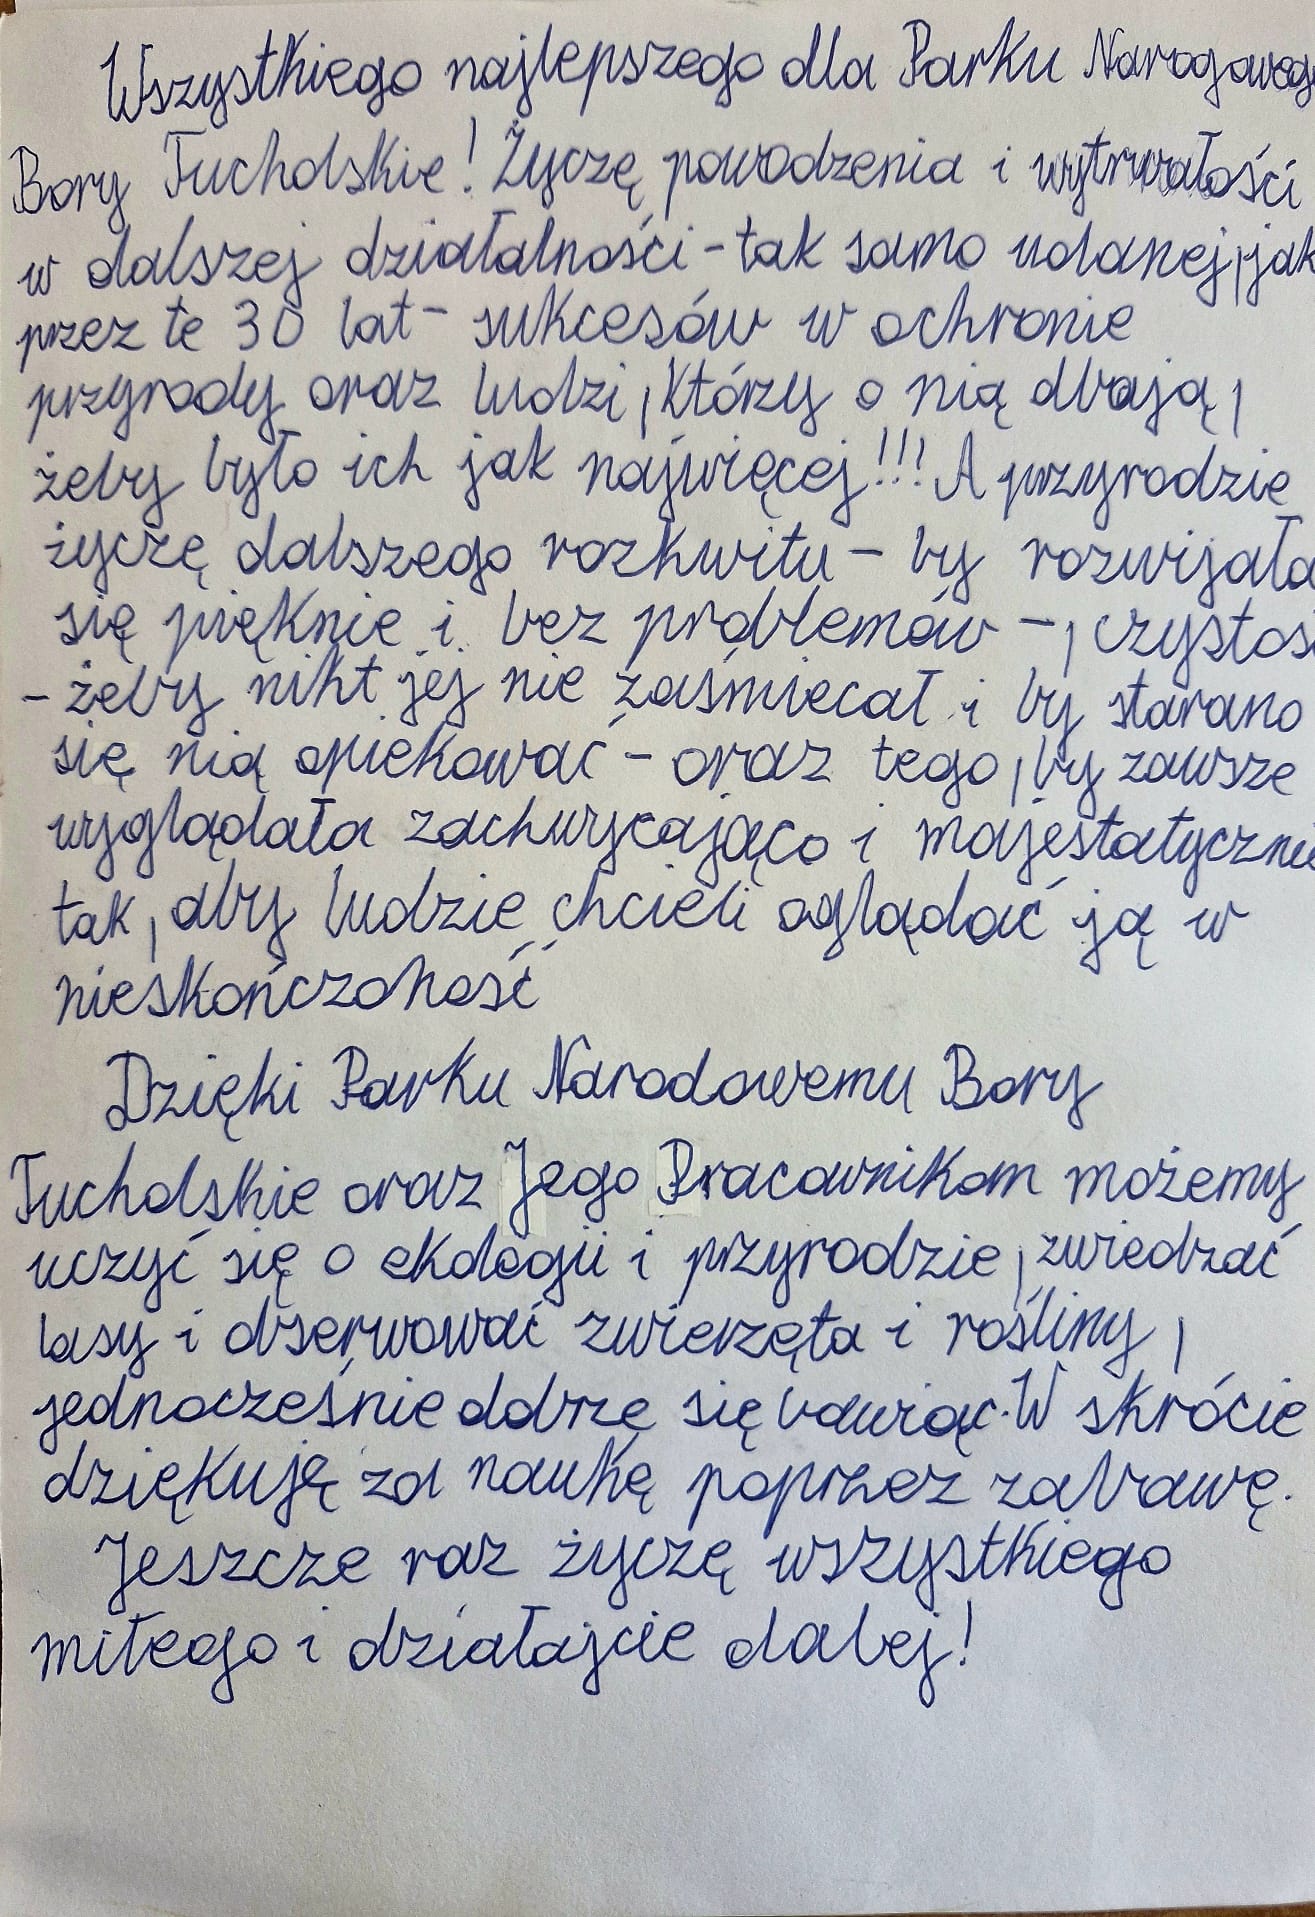 Wszystkiego najlepszego dla Parku Narodoweg
Bory Tucholskie! Życzę powodzenia i wytrwałości
w dalszej działalności - tak samo udanej, jak
przez te 30 lat - sukcesów w ochronie
przyrody oraz ludzi, którzy o nią dbają,
żeby było ich jak najwięcej!!! A przyrodzie
życzę dalszego rozkwitu - by rozwijała
się pięknie i bez problemów -, czystoś
- żeby nikt jej nie zaśmiecał i by starano
się nią opiekować - oraz tego, by zawsze
wyglądała zachwycająco i majestatycznie
tak, aby ludzie chcieli oglądać ją w
nieskończoność
Dzięki Parku Narodowemu Bory
Tucholskie oraz Jego Pracownikom możemy
uczyć się o ekologii i przyrodzie, zwiedzać
lasy i obserwować zwierzęta i rośliny,
jednocześnie dobrze się bawiąc. W skrócie
dziękuję za naukę poprzez zabawę.
Jeszcze raz życzę wszystkiego
miłego i działajcie dalej!